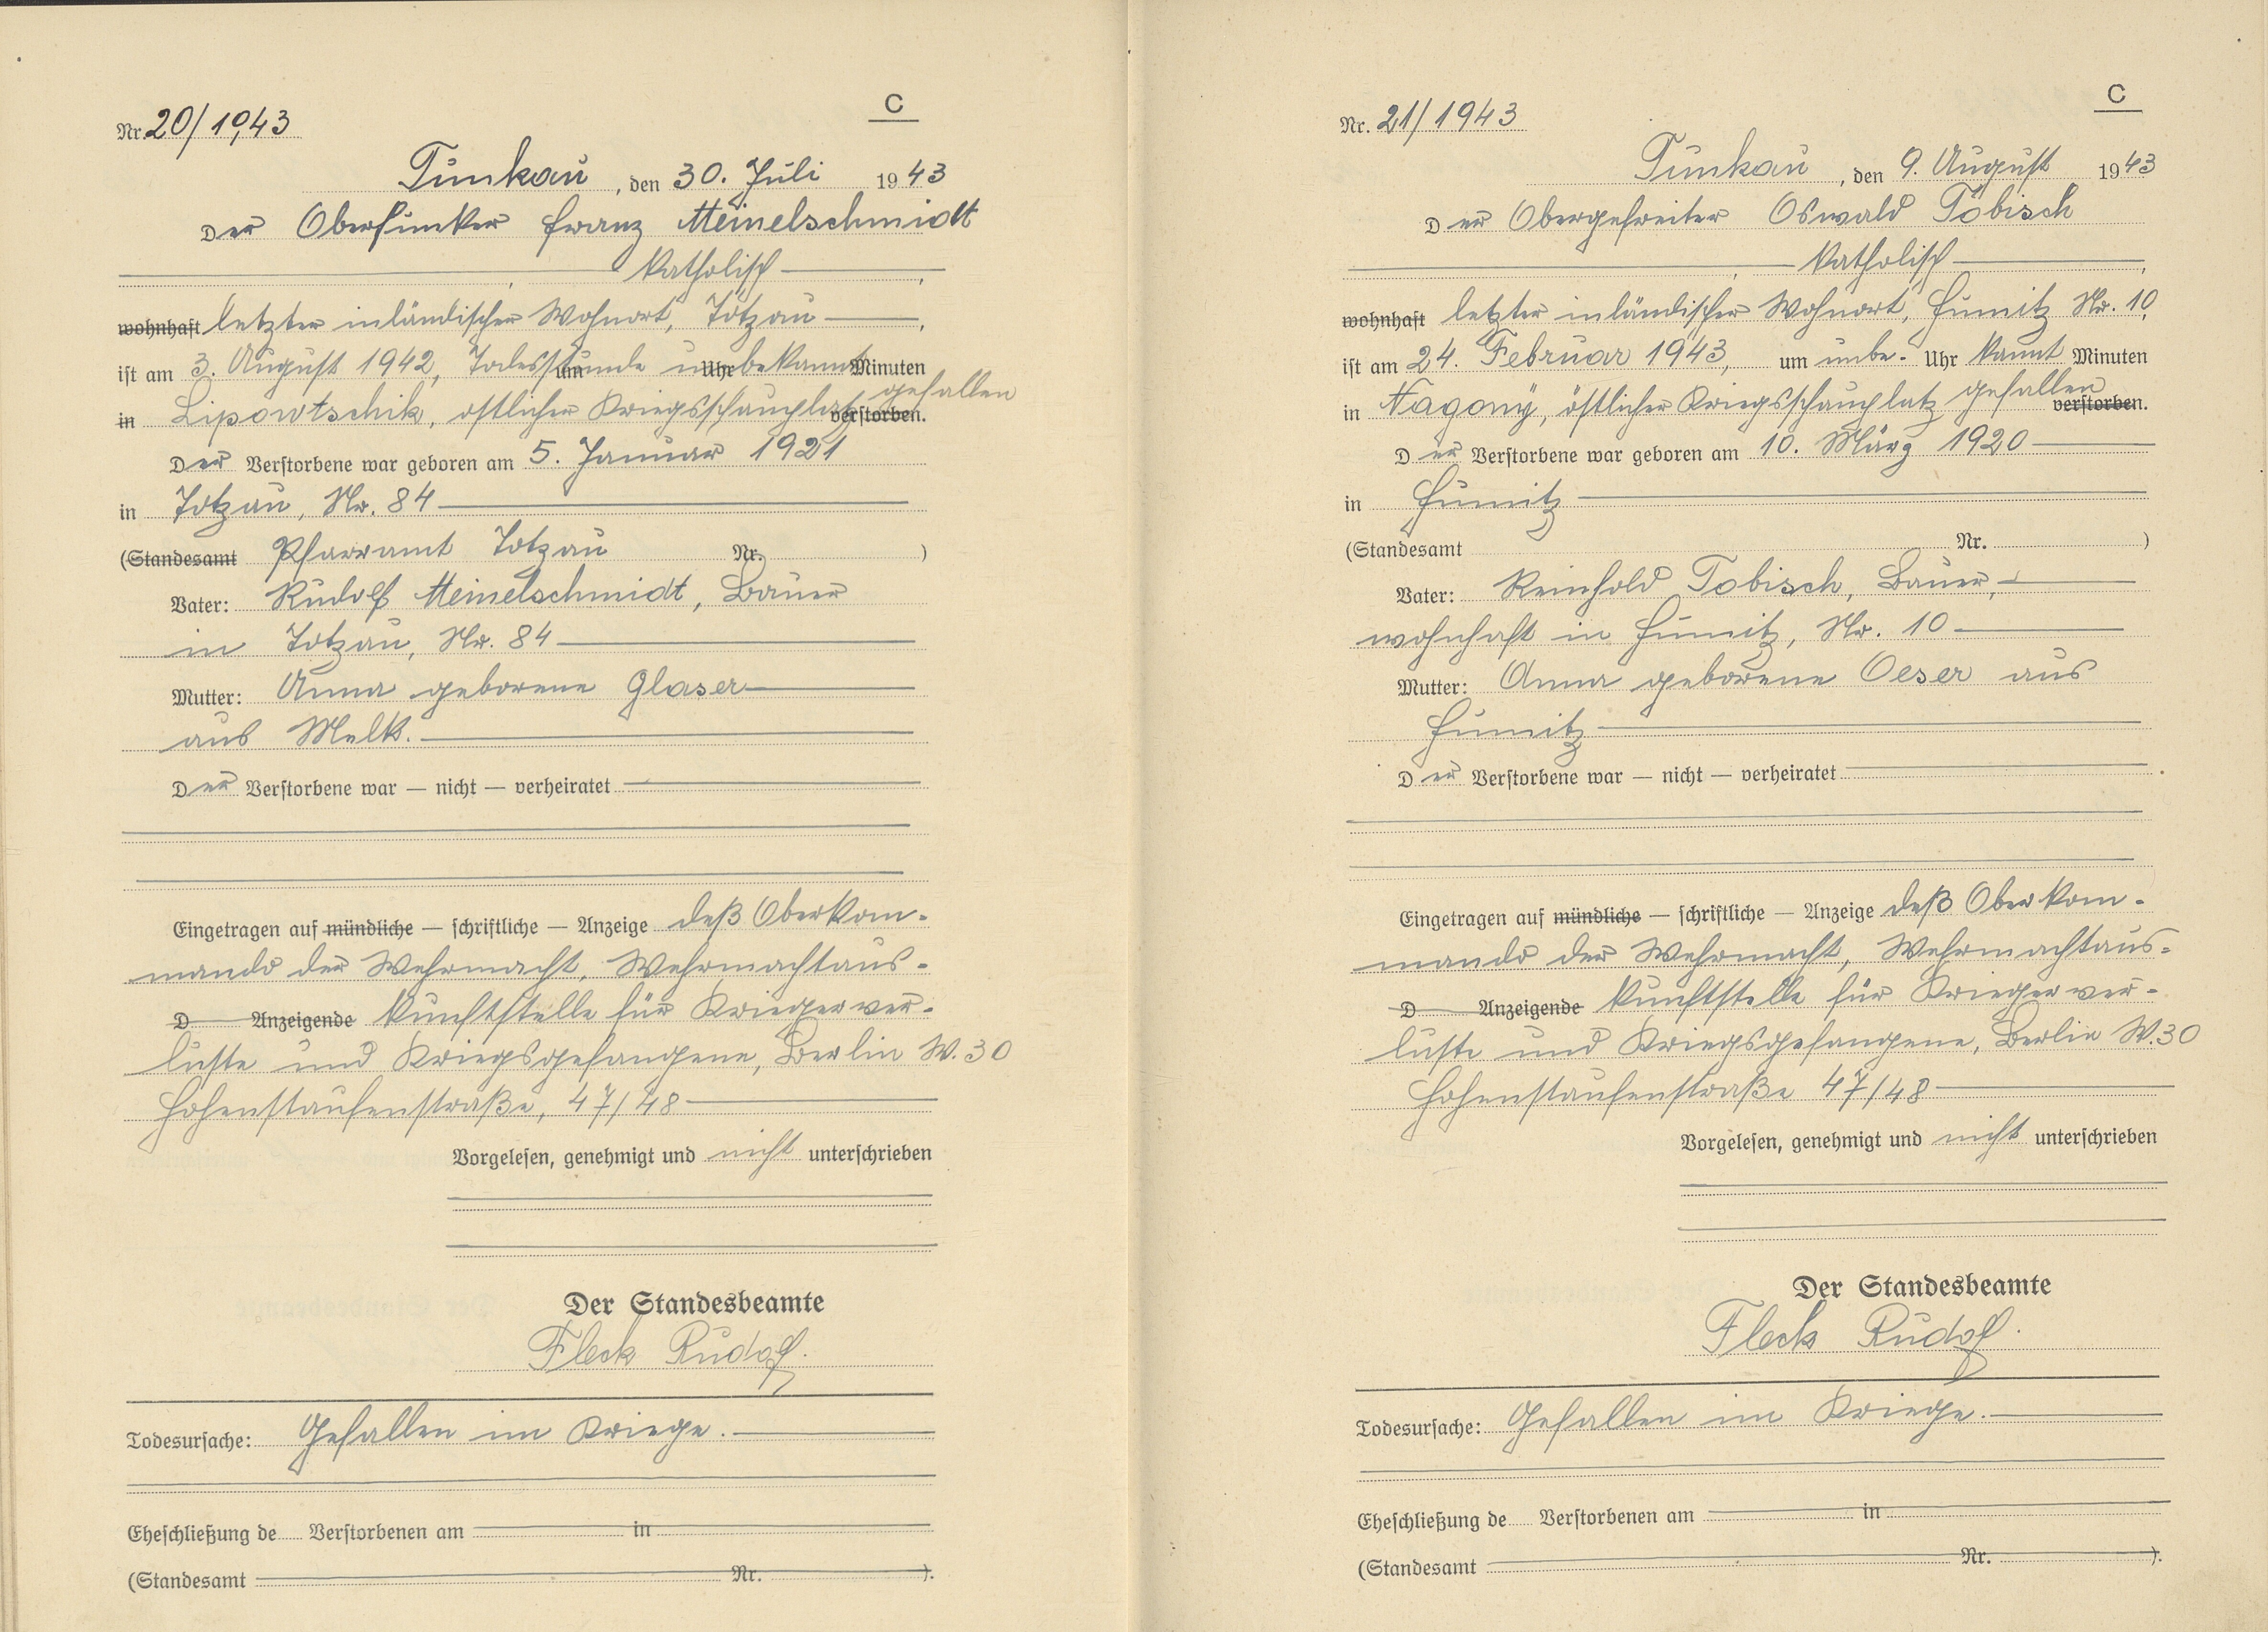 C
Nr. 20/1943
Tunkau, den 30. Juli 1943
Der Oberfunker Franz Meinelschmidt
katholisch
wohnhaft letzter inländischer Wohnort, Totzau
ist am 3. August 1942, Todesstunde um unbekannt Uhr Minuten
in Lipowtschik, östlicher Kriegsschauplatz gefallen verstorben.
Der Verstorbene war geboren am 5. Januar 1921
in Totzau, Nr. 84
(Standesamt Pfarramt Totzau Nr. )
Vater: Rudolf Meinelschmidt, Bauer
in Totzau, Nr. 84
Mutter: Anna geborene Glaser
aus Melk.
Der Verstorbene war — nicht — verheiratet
Eingetragen auf mündliche — schriftliche — Anzeige deß Oberkom-
mando der Wehrmacht, Wehrmachtaus-
D Anzeigende kunftstelle für Kriegerver-
luste und Kriegsgefangene, Berlin W. 30
Hohenstaufenstraße, 47/48
Vorgelesen, genehmigt und nicht unterschrieben
Der Standesbeamte
Fleck Rudolf.
Todesursache: Gefallen im Kriege.
Eheschließung de Verstorbenen am in
(Standesamt Nr. ).
C
Nr. 21/1943
Tunkau, den 9. August 1943
Der Obergefreiter Oswald Tobisch
katholisch
wohnhaft letzter inländischer Wohnort, Humitz Nr. 10,
ist am 24. Februar 1943, um unbe- Uhr kannt Minuten
in Nagony, östlicher Kriegsschauplatz gefallen verstorben.
Der Verstorbene war geboren am 10. März 1920
in Humitz
(Standesamt Nr. )
Vater: Reinhold Tobisch, Bauer,
wohnhaft in Humitz, Nr. 10
Mutter: Anna geborene Oeser aus
Humitz
Der Verstorbene war — nicht — verheiratet
Eingetragen auf mündliche — schriftliche — Anzeige deß Oberkom-
mando der Wehrmacht, Wehrmachtaus-
D Anzeigende kunftstelle für Kriegerver-
luste und Kriegsgefangene, Berlin W. 30
Hohenstaufenstraße 47/48
Vorgelesen, genehmigt und nicht unterschrieben
Der Standesbeamte
Fleck Rudolf.
Todesursache: Gefallen im Kriege.
Eheschließung de Verstorbenen am in
(Standesamt Nr. ).